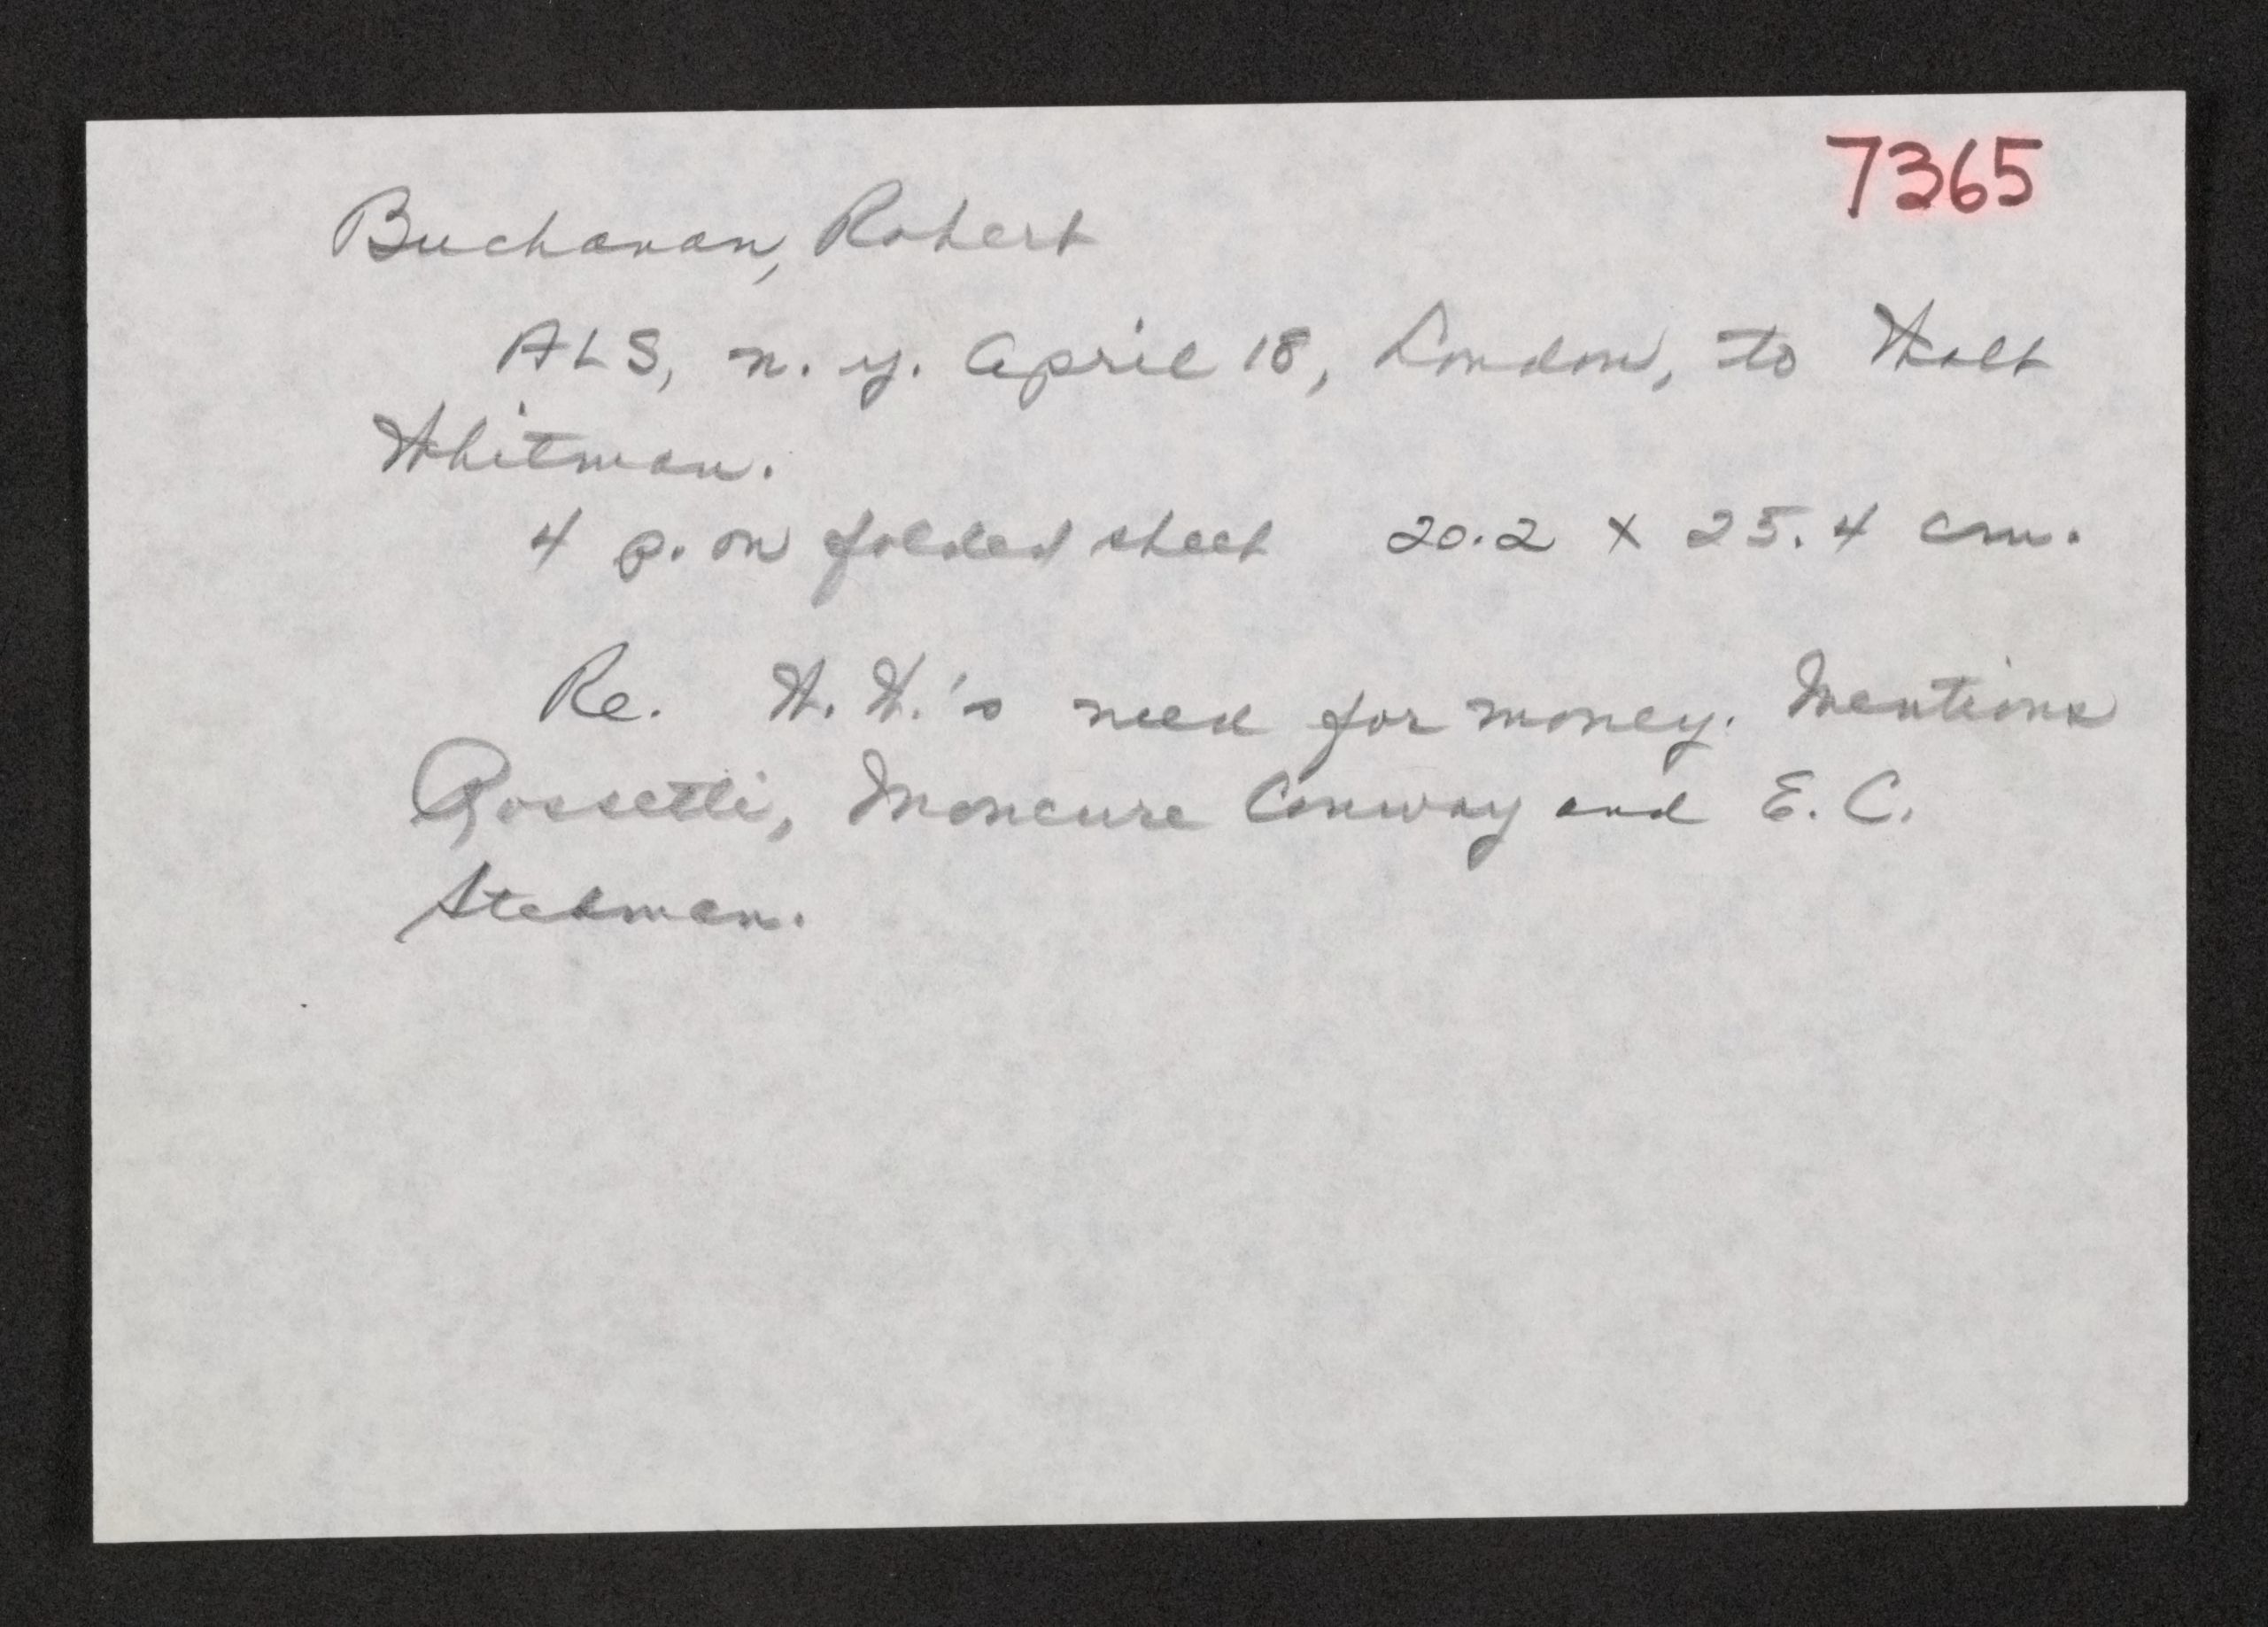 7365
Buchanan, Robert
ALS, n.y. April 18, London, to Walt
Whitman.
4 p. on folded sheet 20.2 x 25.4 cm.
Re. W.W.'s need for money. Mentions
Rossetti, Moncure Conway and E.C.
Stedman.